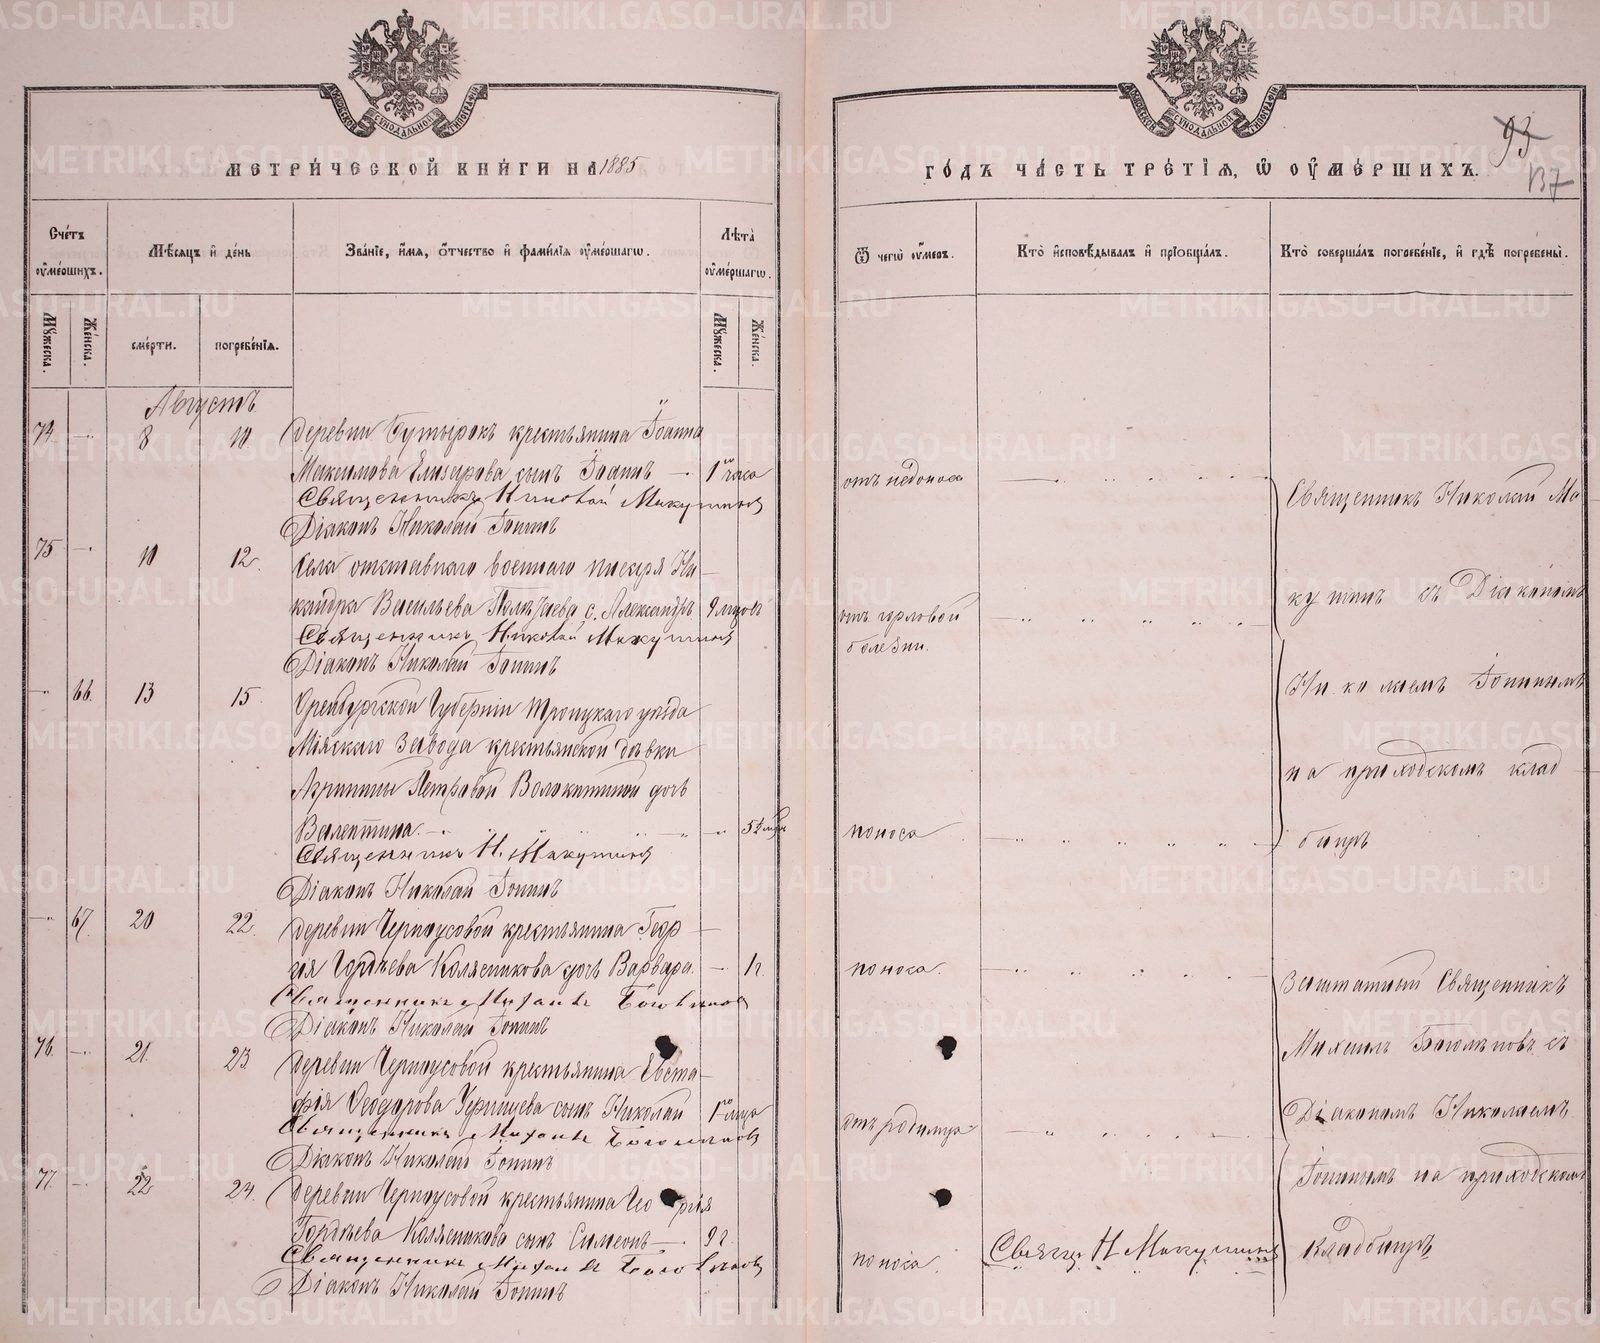 МЕТРИЧЕСКОЙ КНИГИ НА 1885
Счетъ умершихъ.
Мѣсяцъ и день
Званіе, имя, отчество и фамилія умершагѡ.
Лѣта умершагѡ.
Мужеска.
Женска.
смерти.
погребенія.
Мужеска.
Женска.
Августъ
74 8 10 деревни Бутырокъ крестьянина Іоанна
Максимова Елизарова сынъ Іоаннъ 1 часа
Священникъ Николай Макушинъ
Діаконъ Николай Іонинъ
75 10 12. Села отставнаго военнаго писаря Ни-
кандра Васильева с. Александръ 9 мцовъ
Священникъ Николай Макушинъ
Діаконъ Николай Іонинъ
66. 13 15. Оренбургской Губерніи Троицкаго уѣзда
Міяскаго завода крестьянской дѣвки
Агрипины Петровой Волокитиной дочь
Валентина.
Священникъ Н. Макушинъ
Діаконъ Николай Іонинъ
67. 20 22. деревни Черноусовой крестьянина Геор-
гія Гордѣева Колясникова дочь Варвара.
Священникъ Михаилъ
Діаконъ Николай Іонинъ
76. 21. 23. деревни Черноусовой крестьянина Евста-
фія Ѳеодорова сынъ Николай 1 мца
Священникъ Михаилъ
Діаконъ Николай Іонинъ
77. 22 24. деревни Черноусовой крестьянина Георгія
Гордѣева Колясникова сынъ Симеонъ 9 г.
Священникъ Михаилъ
Діаконъ Николай Іонинъ
ГОДЪ ЧАСТЬ ТРЕТІЯ, Ѡ УМЕРШИХЪ.
93
137
Ѿ чегѡ умеръ.
Кто исповѣдывалъ и пріобщалъ.
Кто совершалъ погребеніе, и гдѣ погребены.
отъ недоноса
Священникъ Николай Ма-
отъ горловой
болезни.
кушинъ съ Діакономъ
Николаемъ Іонинымъ
на приходскомъ клад
поноса
бищѣ
поноса.
Заштатный Священникъ
Михаилъ съ
отъ родимца
Діакономъ Николаемъ
Іонинымъ на приходскомъ
поноса.
Свящ. Н Макушинъ
кладбищѣ
METRIKI.GASO-URAL.RU